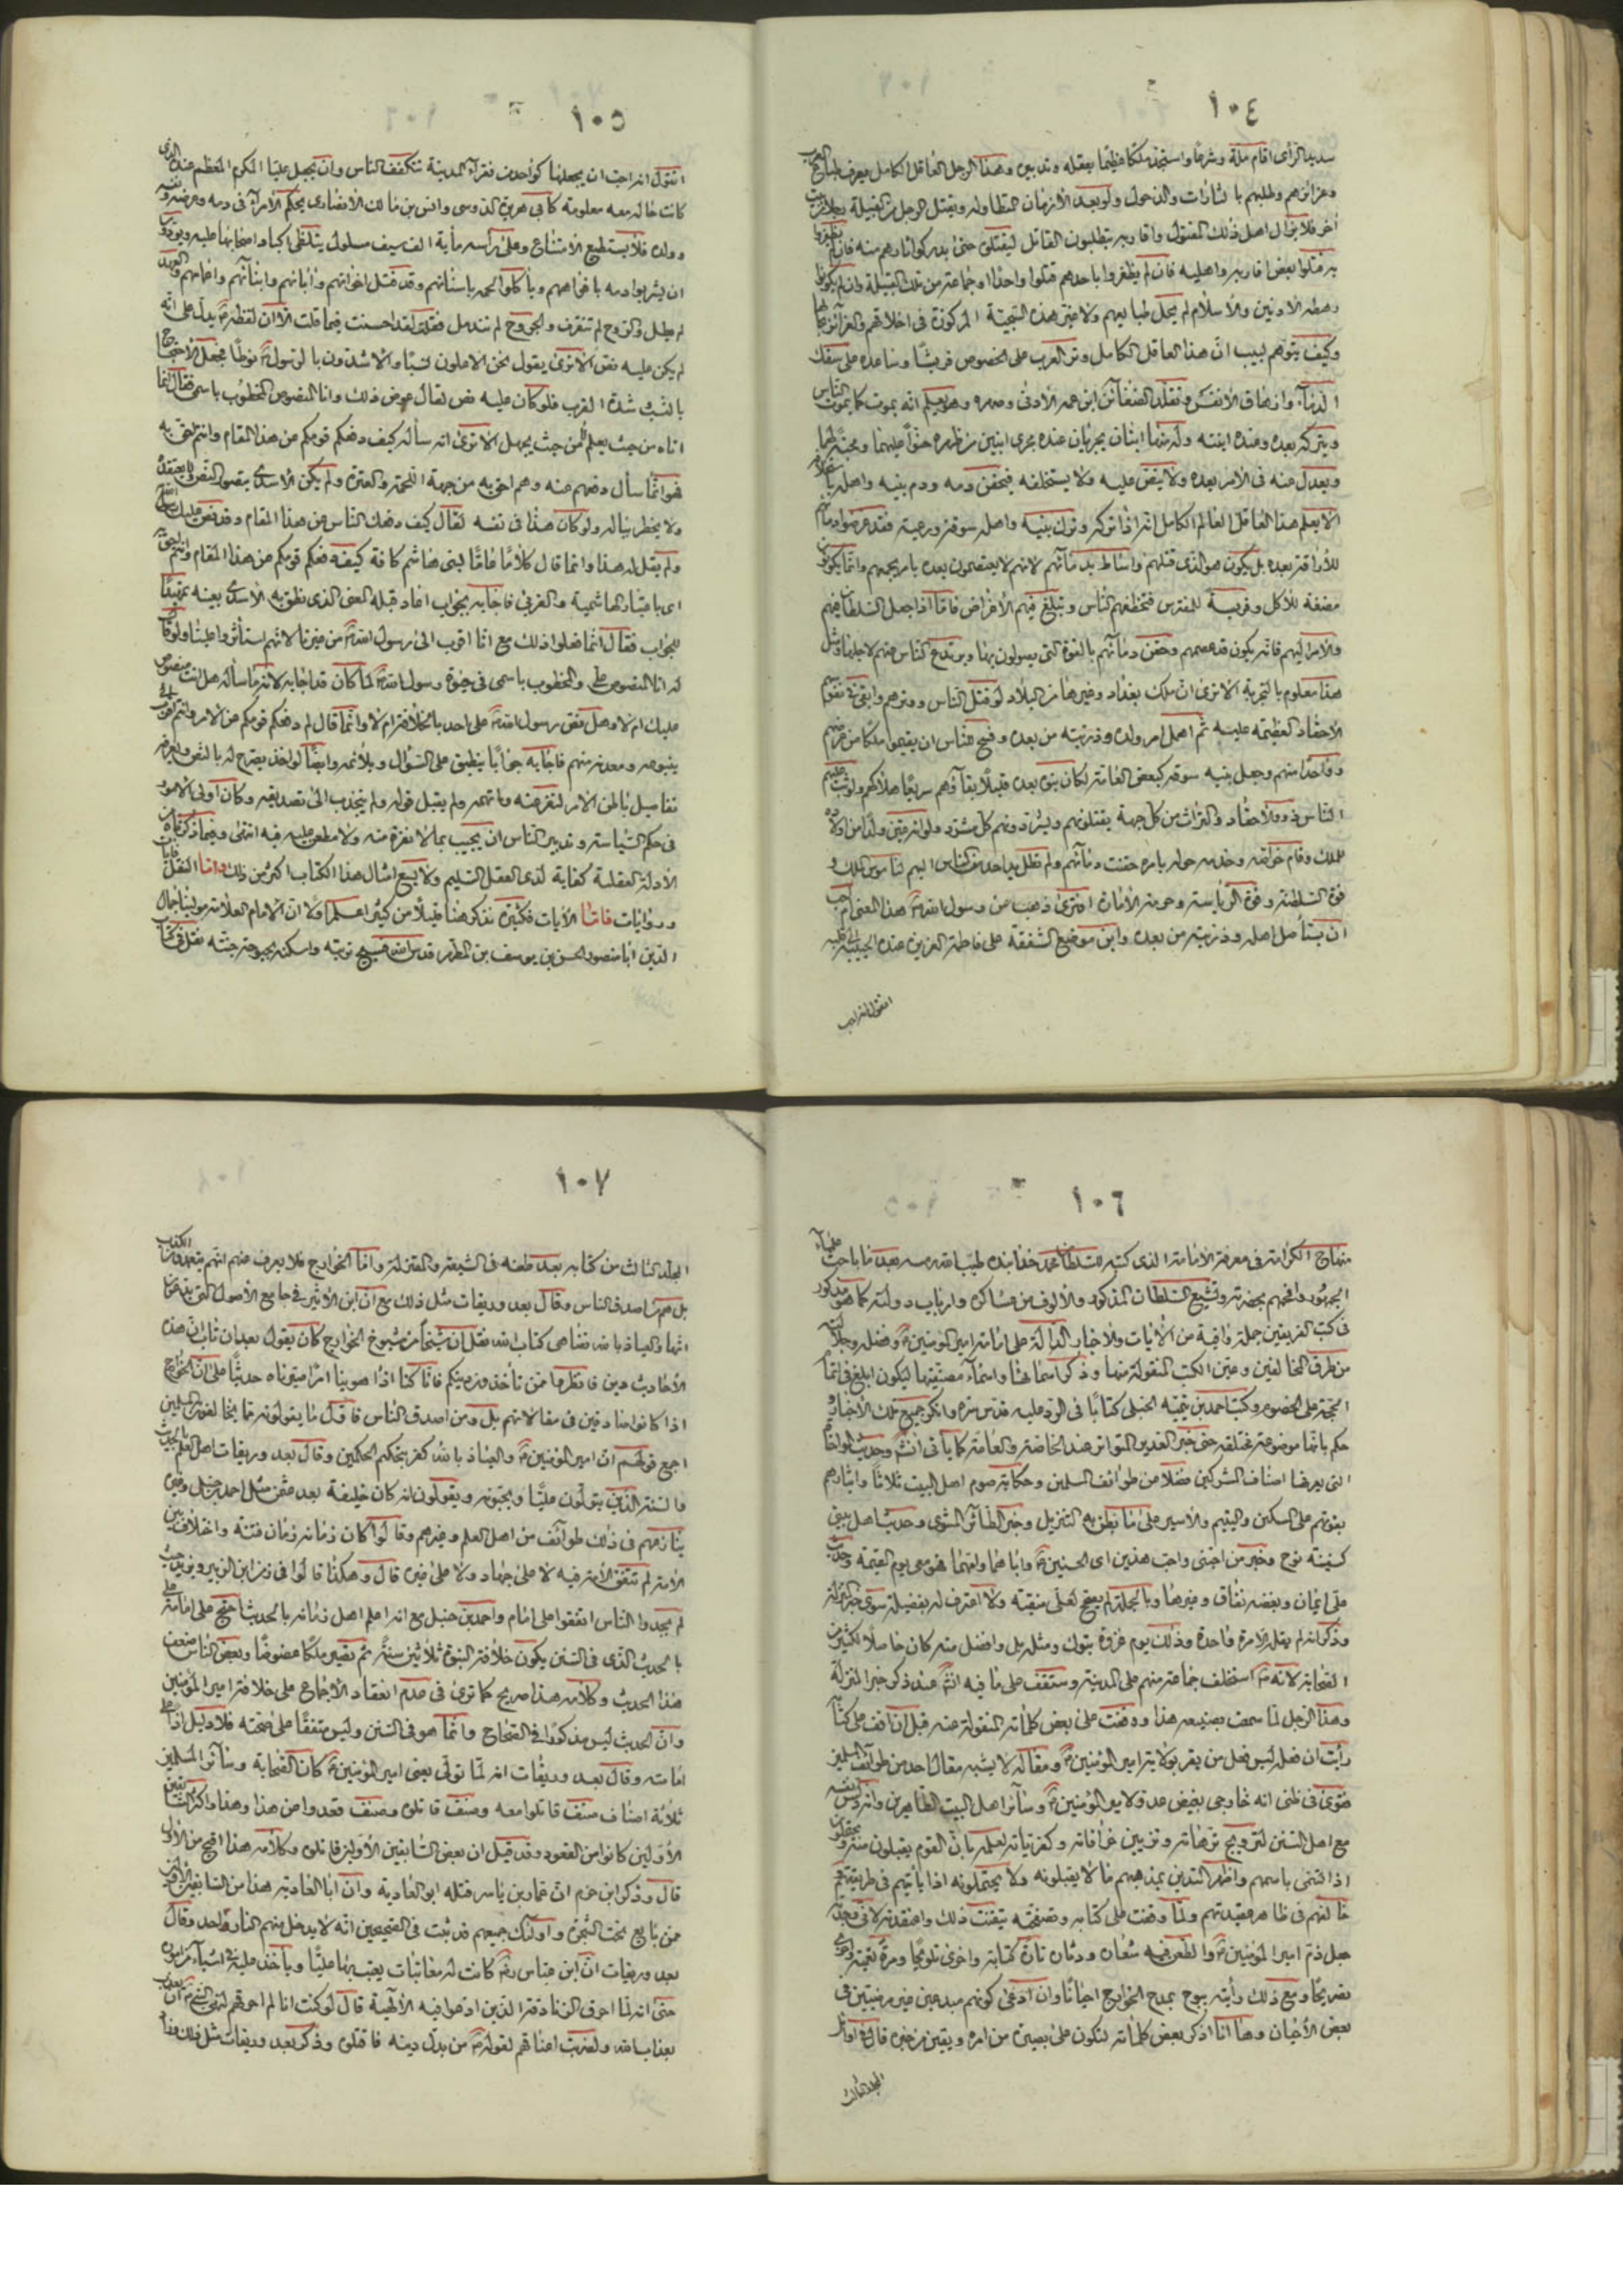 ١٠٤
سديد الرأى اقام ملة وشرعًا واستجد ملكًا عظيمًا بعقله وتدبيره وهذا الرجل العاقل الكامل يعرف طبايع العرب
وغرائزهم وطلبهم بالثارات والذحول ولو بعد الأزمان المتطاولة ويقتل الرجل من القبيلة رجلا من بيت
آخر فلا يزال اهل ذلك المقتول واقاربه يتطلبون القاتل ليقتلوه حتى يدركوا ثارهم منه فان لم يظفروا
به قتلوا بعض اقاربه واهليه فان لم يظفروا باحدهم قتلوا واحدًا او جماعة من تلك القبيلة وان لم يكونوا
رهطه الادنين والاسلام لم يحل طبايعهم ولا غير هذه السجية المركوزة فى اخلاقهم والغرائز بحالها
وكيف يتوهم لبيب ان هذا العاقل الكامل وتر العرب على الخصوص قريشًا وساعده على سفك
الدماء وازهاق الأنفس وتقلد الضغائن ابن عمه الأدنى وصهره وهو يعلم انه يموت كما يموت الناس
ويتركه بعده وعنده ابنته وله منها ابنان يجريان عنده مجرى ابنين من ظهره حنوًا عليهما ومحبة لهما
ويعدل عنه فى الأمر بعده ولا ينص عليه ولا يستخلفه فيحقن دمه ودم بنيه واهله باستخلافه
الا يعلم هذا العاقل العالم الكامل انه اذا تركه وترك بنيه واهله سوقة ورعية فقد عرض دماءهم
للأراقة بعده بل يكون هو الذى قتلهم واشاط بدمائهم لانهم لا يعتصمون بعده بامر يحميهم وانما يكونون
مضغة للأكل وفريسة للمفترس فتخطفهم الناس ويبلغ فيهم الأغراض فاما اذا جعل السلطان فيهم
والامر اليهم فانه يكون قد عصمهم وحقن دمائهم بالقوة التى يصولون بها ويرتدع الناس عنهم لاجلها ومثل
هذا معلوم بالتجربة الا ترى ان ملك بغداد وغيرها من البلاد لو قتل الناس ووترهم وابقى فى نفوسهم
الأحقاد العظيمة عليه ثم اهمل امر ولده وذريته من بعده وفسح للناس ان يقيموا ملكًا من عرضهم
وواحدًا منهم وجعل بنيه سوقة كبعض العامة لكان بنوه بعده قليلًا بقاؤهم سريعًا هلاكهم ولوثب عليهم
الناس ذوو الأحقاد والترات من كل جهة يقتلونهم ويشردونهم كل مشرد ولو انه عين ولدًا من اولاده
للملك وقام خواصه وخدمه وخوله بامره بعده لحقنت دمائهم ولم تطل يد احد من الناس اليهم لناموس الملك و
قوة السلطنة وقوة الرياسة وحرمة الأمارة افترى ذهب عن رسول الله ص هذا المعنى ام احب
ان يستأصل اهله وذريته من بعده واين موضع الشفقة على فاطمة العزيزة عنده الحبيبة الى قلبه
اتقول انه احب
١٠٥
اتقول انه احب ان يجعلها كواحدة من فقراء المدينة تتكفف الناس وان يجعل عليا المكرم المعظم عنده الذى
كانت حاله معه معلومة كابى هريرة الدوسى وانس بن مالك الأنصارى يحكم الأمراء فى دمه وعرضه ونفسه
وولده فلا يستطيع الأمتناع وعلى رأسه مأية الف سيف مسلول يتلظى اكباد اصحابها عليه ويودون
ان يشربوا دمه بافواههم ويأكلوا لحمه باسنانهم وقد قتل اخوانهم وآبائهم وابنائهم واعمامهم والعهد
لم يطل والقروح لم تتقرف والجروح لم تندمل فقلت لقد احسنت فيما قلت الا ان لفظه ع يدل على انه
لم يكن عليه نص الا ترى يقول نحن الاعلون نسبًا والأشدون بالرسول ص نوطًا فجعل الاحتجاج
بالنسب وشدة القرب فلو كان عليه نص لقال عوض ذلك وانا المنصوص على المخطوب باسمى فقال انما
اتاه من حيث يعلم لا من حيث يجهل الا ترى انه سأله كيف دفعكم قومكم عن هذا المقام وانتم احق به
فهو انما سأل دفعهم عنه وهم احق به من جهة اللحمة والعترة ولم يكن الأسدى يتصور النص ولا يعتقده
ولا يخطر بباله ولو كان هذا فى نفسه لقال كيف دفعك الناس عن هذا المقام وقد نص عليك رسول الله
ولم يقل له هذا وانما قال كلامًا عامًا لبنى هاشم كافة كيف دفعكم قومكم عن هذا المقام وانتم احق به
اى باعتبار الهاشمية والقربى فاجابه بجواب اعاد قبله المعنى الذى تعلق به الأسدى بعينه تمهيدًا
للجواب فقال انما فعلوا ذلك مع انا اقرب الى رسول الله ص من غيرنا لانهم استأثروا علينا ولو قال
له انا المنصوص على والمخطوب باسمى فى حيوة رسول الله ص لما كان قد اجابه لانه ما سأله هل انت منصوص
عليك ام لا وهل نص رسول الله ص على احد بالخلافة ام لا وانما قال لم دفعكم قومكم عن الامر وانتم اقرب الى
ينبوعه ومعدنه منهم فاجابه جوابًا ينطبق على السؤال ويلائمه وايضًا لو اخذ يصرح له بالنص ويعرفه
تفاصيل باطن الامر لنفر عنه واتهمه ولم يقبل قوله ولم ينجذب الى تصديقه وكان اولى الامور
فى حكم السياسة وتدبير الناس ان يجيب بما لا نفرة منه ولا مطعن عليه فيه انتهى وفيما ذكرناه من
الأدلة العقلية كفاية لذى العقل السليم ولا يسع امثال هذا الكتاب اكثر من ذلك واما النقل فآيات
وروايات فاما الآيات فكثيرة نذكر هنا قليلًا من كثير اعلم اولا ان الامام العلامة مولينا جمال
الدين ابا منصور الحسن بن يوسف بن المطهر قدس الله فسيح تربته واسكنه بحبوحة جنته نقل فى كتاب
١٠٦
منهاج الكرامة فى معرفة الأمامة الذى كتبه للسلطان محمد خدابنده طيب الله رمسه بعد ما باحث علماء
الجمهور وافحمهم بحضرته وتشيع السلطان المذكور والألوف من عساكره وارباب دولته كما هو مذكور
فى كتب الفريقين جملة وافية من الآيات والاخبار الدالة على امامة امير المؤمنين ع وفضله وجلالته
من طرق المخالفين وعين الكتب المنقولة عنها وذكر اسمائها واسماء مصنفيها ليكون ابلغ فى اتمام
الحجة على الخصوم وكتب احمد بن تيميه الحنبلى كتابًا فى الرد عليه قدس سره وانكر جميع تلك الأخبار و
حكم بانها موضوعة مختلقة حتى خبر الغدير المتواتر عند الخاصة والعامة كما يأتى انش وحديث المواخاة
التى يعرفها اصناف المشركين فضلًا من طوائف المسلمين وحكاية صوم اهل البيت ثلاثًا وايثارهم
بقوتهم على المسكين واليتيم والأسير على ما نطق به التنزيل وخبر الطائر المشوى وحديث اهل بيتى
كسفينة نوح وخبر من احبنى واحب هذين اى الحسنين ع واباهما وامهما فهو معى يوم القيمة وحديث
على ايمان وبغضه نفاق وغيرها وبالجملة لم يصح لعلى منقبة ولا اعترف له بفضيلة سوى خبر المنزلة
وذكر انه لم يقله الا مرة واحدة وذلك يوم غزوة تبوك ومثله بل وافضل منه كان حاصلًا لكثير من
الصحابة لانه ص استخلف جماعة منهم على المدينة وستقف على ما فيه انش عند ذكر خبر المنزلة
وهذا الرجل لما سمعت بصنيعه هذا ووقفت على بعض كلماته المنقولة عنه قبل ان اقف على كتابه
رأيت ان فعله ليس فعل من يقر بولاية امير المؤمنين ع ومقاله لا يشبه مقال احد من طوائف المسلمين
فقوى فى ظنى انه خارجى بغيض عدو لامير المؤمنين ع وسائر اهل البيت الطاهرين وانه دس نفسه
مع اهل السنن لترويج ترهاته وتزيين خرافاته وكفرياته لعلمه بان القوم يقبلون منه و يحتملون
اذا تسمى باسمهم واظهر التدين بمذهبهم ما لا يقبلونه ولا يحتملونه اذا باينهم فى طريقتهم و
خالفهم فى ظاهر عقيدتهم ولما وقفت على كتابه وتصفحته تيقنت ذلك واعتقدته لانى وجدته
جعل ذم امير المؤمنين ع والطعن فيه شعاره ودثاره تارة كناية واخرى تلويحًا ومرة تعمية واخرى
تصريحًا ومع ذلك رأيته يبوح بمدح الخوارج احيانًا وان ادعى كونهم مبدعين غير مرضيين فى
بعض الأحيان وها انا اذكر بعض كلماته لتكون على بصيرة من امره ويقين من خبره قال فى اوائل
المجلد الثالث
١٠٧
المجلد الثالث من كتابه بعد طعنه فى الشيعة والمعتزلة واما الخوارج فلا يعرف عنهم انهم يتعمدون الكذب
بل هم من اصدق الناس وقال بعد وريقات مثل ذلك مع ان ابن الأثير فى جامع الأصول التى يدعون
انها والعياذ بالله تضاهى كتاب الله نقل ان شيخًا من شيوخ الخوارج كان يقول بعد ان تاب ان هذه
الأحاديث دين فانظروا عمن تأخذون دينكم فانا كنا اذا هوينا امرًا صيرناه حديثًا على ان الخوارج
اذا كانوا صادقين فى مقالاتهم بل ومن اصدق الناس فاقل ما يقولونه مما يخالفون المسلمين
اجمع قولهم ان امير المؤمنين ع والعياذ بالله كفر بتحكيم الحكمين وقال بعد وريقات اهل العلم بالحديث
والسنة الذين يتولون عليًا ويحبونه ويقولون انه كان خليفة بعد عثمن مثل احمد بن حنبل وغيره
ينازعهم فى ذلك طوائف من اهل العلم وغيرهم وقالوا كان زمانه زمان فتنة واختلاف بين
الأمة لم تتفق الأمة فيه لا على جهاد ولا على غيره قال وهكذا قالوا فى زمن ابن الزبير ويزيد حيث
لم يجدوا الناس اتفقوا على امام واحمد بن حنبل مع انه اعلم اهل زمانه بالحديث احتج على امامة على
بالحديث الذى فى السنن يكون خلافة النبوة ثلاثين سنة ثم تصير ملكًا عضوضًا وبعض الناس ضعف
هذا الحديث وكلامه هذا صريح كما ترى فى عدم انعقاد الأجماع على خلافة امير المؤمنين
وان الحديث ليس مذكورًا فى الصحاح وانما هو فى السنن وليس متفقًا على صحته فلا دليل اذًا على
امامته وقال بعد وريقات انه لما تولى يعنى امير المؤمنين ع كان الصحابة وسائر المسلمين
ثلاثة اصناف صنف قاتلوا معه وصنف قاتلوه وصنف قعدوا عن هذا وهذا واكثر السابقين
الأولين كانوا من القعود وقد قيل ان بعض السابقين الأولين قاتلوه وكلامه هذا اقبح من الأول
قال وذكر ابن حزم ان عمار بن ياسر قتله ابو الغادية وان ابا الغادية هذا من السابقين الأولين
ممن بايع تحت الشجرة واولئك جميعهم قد ثبت فى الصحيحين انه لا يدخل منهم النار واحد وقال
بعد وريقات ان ابن عباس رض كانت له معاتبات يعيب بها عليًا ويأخذ عليه فى اشياء من اموره
حتى انه لما احرق الزنادقة الذين ادعوا فيه الألهية قال لو كنت انا لم احرقهم لنهى النبى ص ان يعذب
بعذاب الله ولضربت اعناقهم لقوله ص من بدل دينه فاقتلوه وذكر بعد وريقات مثل ذلك وهذا